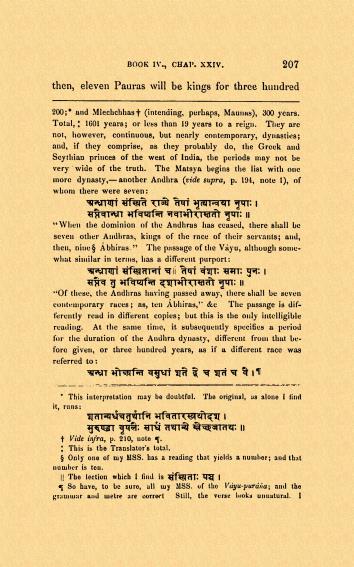 BOOK IV., CHAP. XXIV. 207
then, eleven Pauras will be kings for three hundred
200;* and Mlechchhas† (intending, perhaps, Maunas), 300 years.
Total,‡ 1601 years; or less than 19 years to a reign. They are
not, however, continuous, but nearly contemporary, dynasties;
and, if they comprise, as they probably do, the Greek and
Scythian princes of the west of India, the periods may not be
very wide of the truth. The Matsya begins the list with one
more dynasty,—another Andhra (vide supra, p. 194, note 1), of
whom there were seven:
अन्ध्राणां संस्थिते राज्ये तेषां भृत्यान्वया नृपाः ।
सप्तैवान्ध्रा भविष्यन्ति नवाभीरास्ततो नृपाः ॥
"When the dominion of the Andhras has ceased, there shall be
seven other Andhras, kings of the race of their servants; and,
then, nine§ Ábhíras." The passage of the Váyu, although some-
what similar in terms, has a different purport:
अन्ध्राणां संस्थितानां च॥ तेषां वंशाः समाः पुनः ।
सप्तैव तु भविष्यन्ति दशाभीरास्ततो नृपाः ॥
"Of these, the Andhras having passed away, there shall be seven
contemporary races; as, ten Ábhíras," &c The passage is dif-
ferently read in different copies; but this is the only intelligible
reading. At the same time, it subsequently specifies a period
for the duration of the Andhra dynasty, different from that be-
fore given, or three hundred years, as if a different race was
referred to:
अन्ध्रा भोक्ष्यन्ति वसुधां शते द्वे च शतं च वै ।¶
* This interpretation may be doubtful. The original, as alone I find
it, runs:
शतान्यर्धचतुर्थानि भवितारस्त्रयोदश ।
मुरुण्डा वृषलैः सार्धं तथान्ये म्लेच्छजातयः ॥
† Vide infra, p. 210, note ¶.
‡ This is the Translator's total.
§ Only one of my MSS. has a reading that yields a number; and that
number is ten.
|| The lection which I find is संस्थिताः पञ्च ।
¶ So have, to be sure, all my MSS. of the Váyu-puráńa; and the
grammar and metre are correct Still, the verse looks unnatural. I